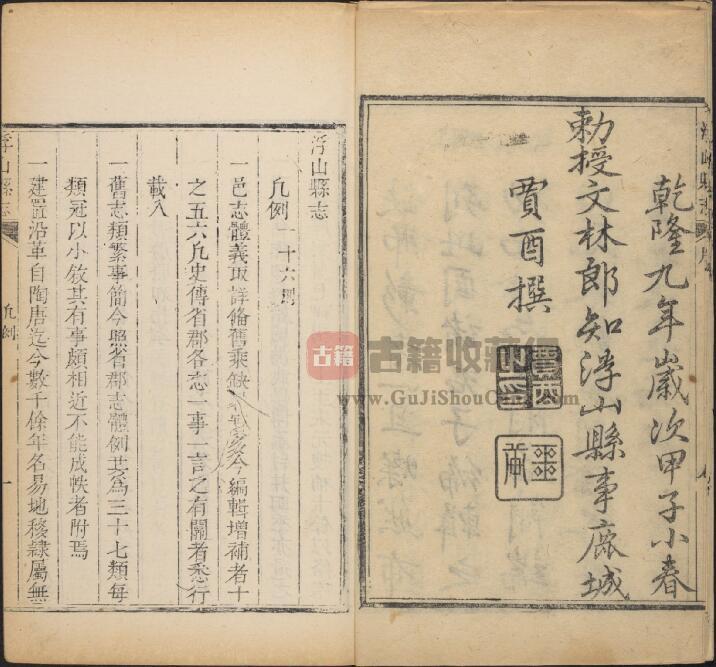 乾隆九年歲次甲子小春
勅授文林郎知浮山縣事鹿城
賈酉撰
浮山縣志
凡例二十六則
一邑志體義取詳備舊乘缺今編輯增補者十
之五六凡史傳省郡各志一事一言之有關者悉行
載入
一舊志類繁事簡今照省郡志體例共為三十七類每
類冠以小敘其有事頗相近不能成帙者附焉
一建置沿革自陶唐迄今數千餘年名易地移隸屬無
浮山縣志
凡例
一
古籍
古籍收藏
www.GuJiShouCang.com